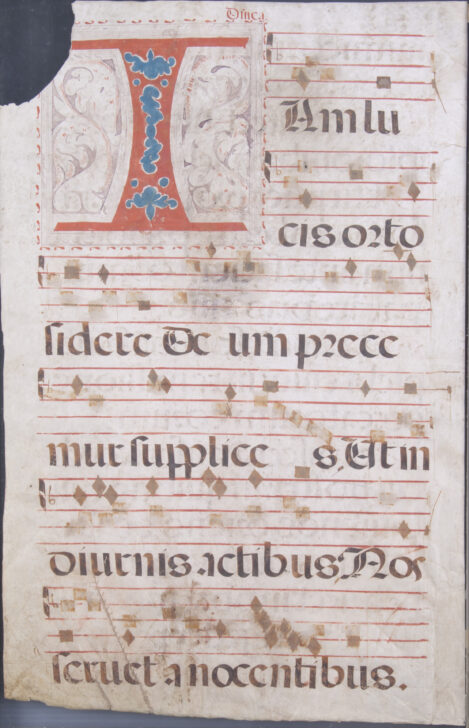 IAm lu
cis orto
sidere De um prece
mur supplice s. Ut in
diurnis actibus Nos
servet a nocentibus.